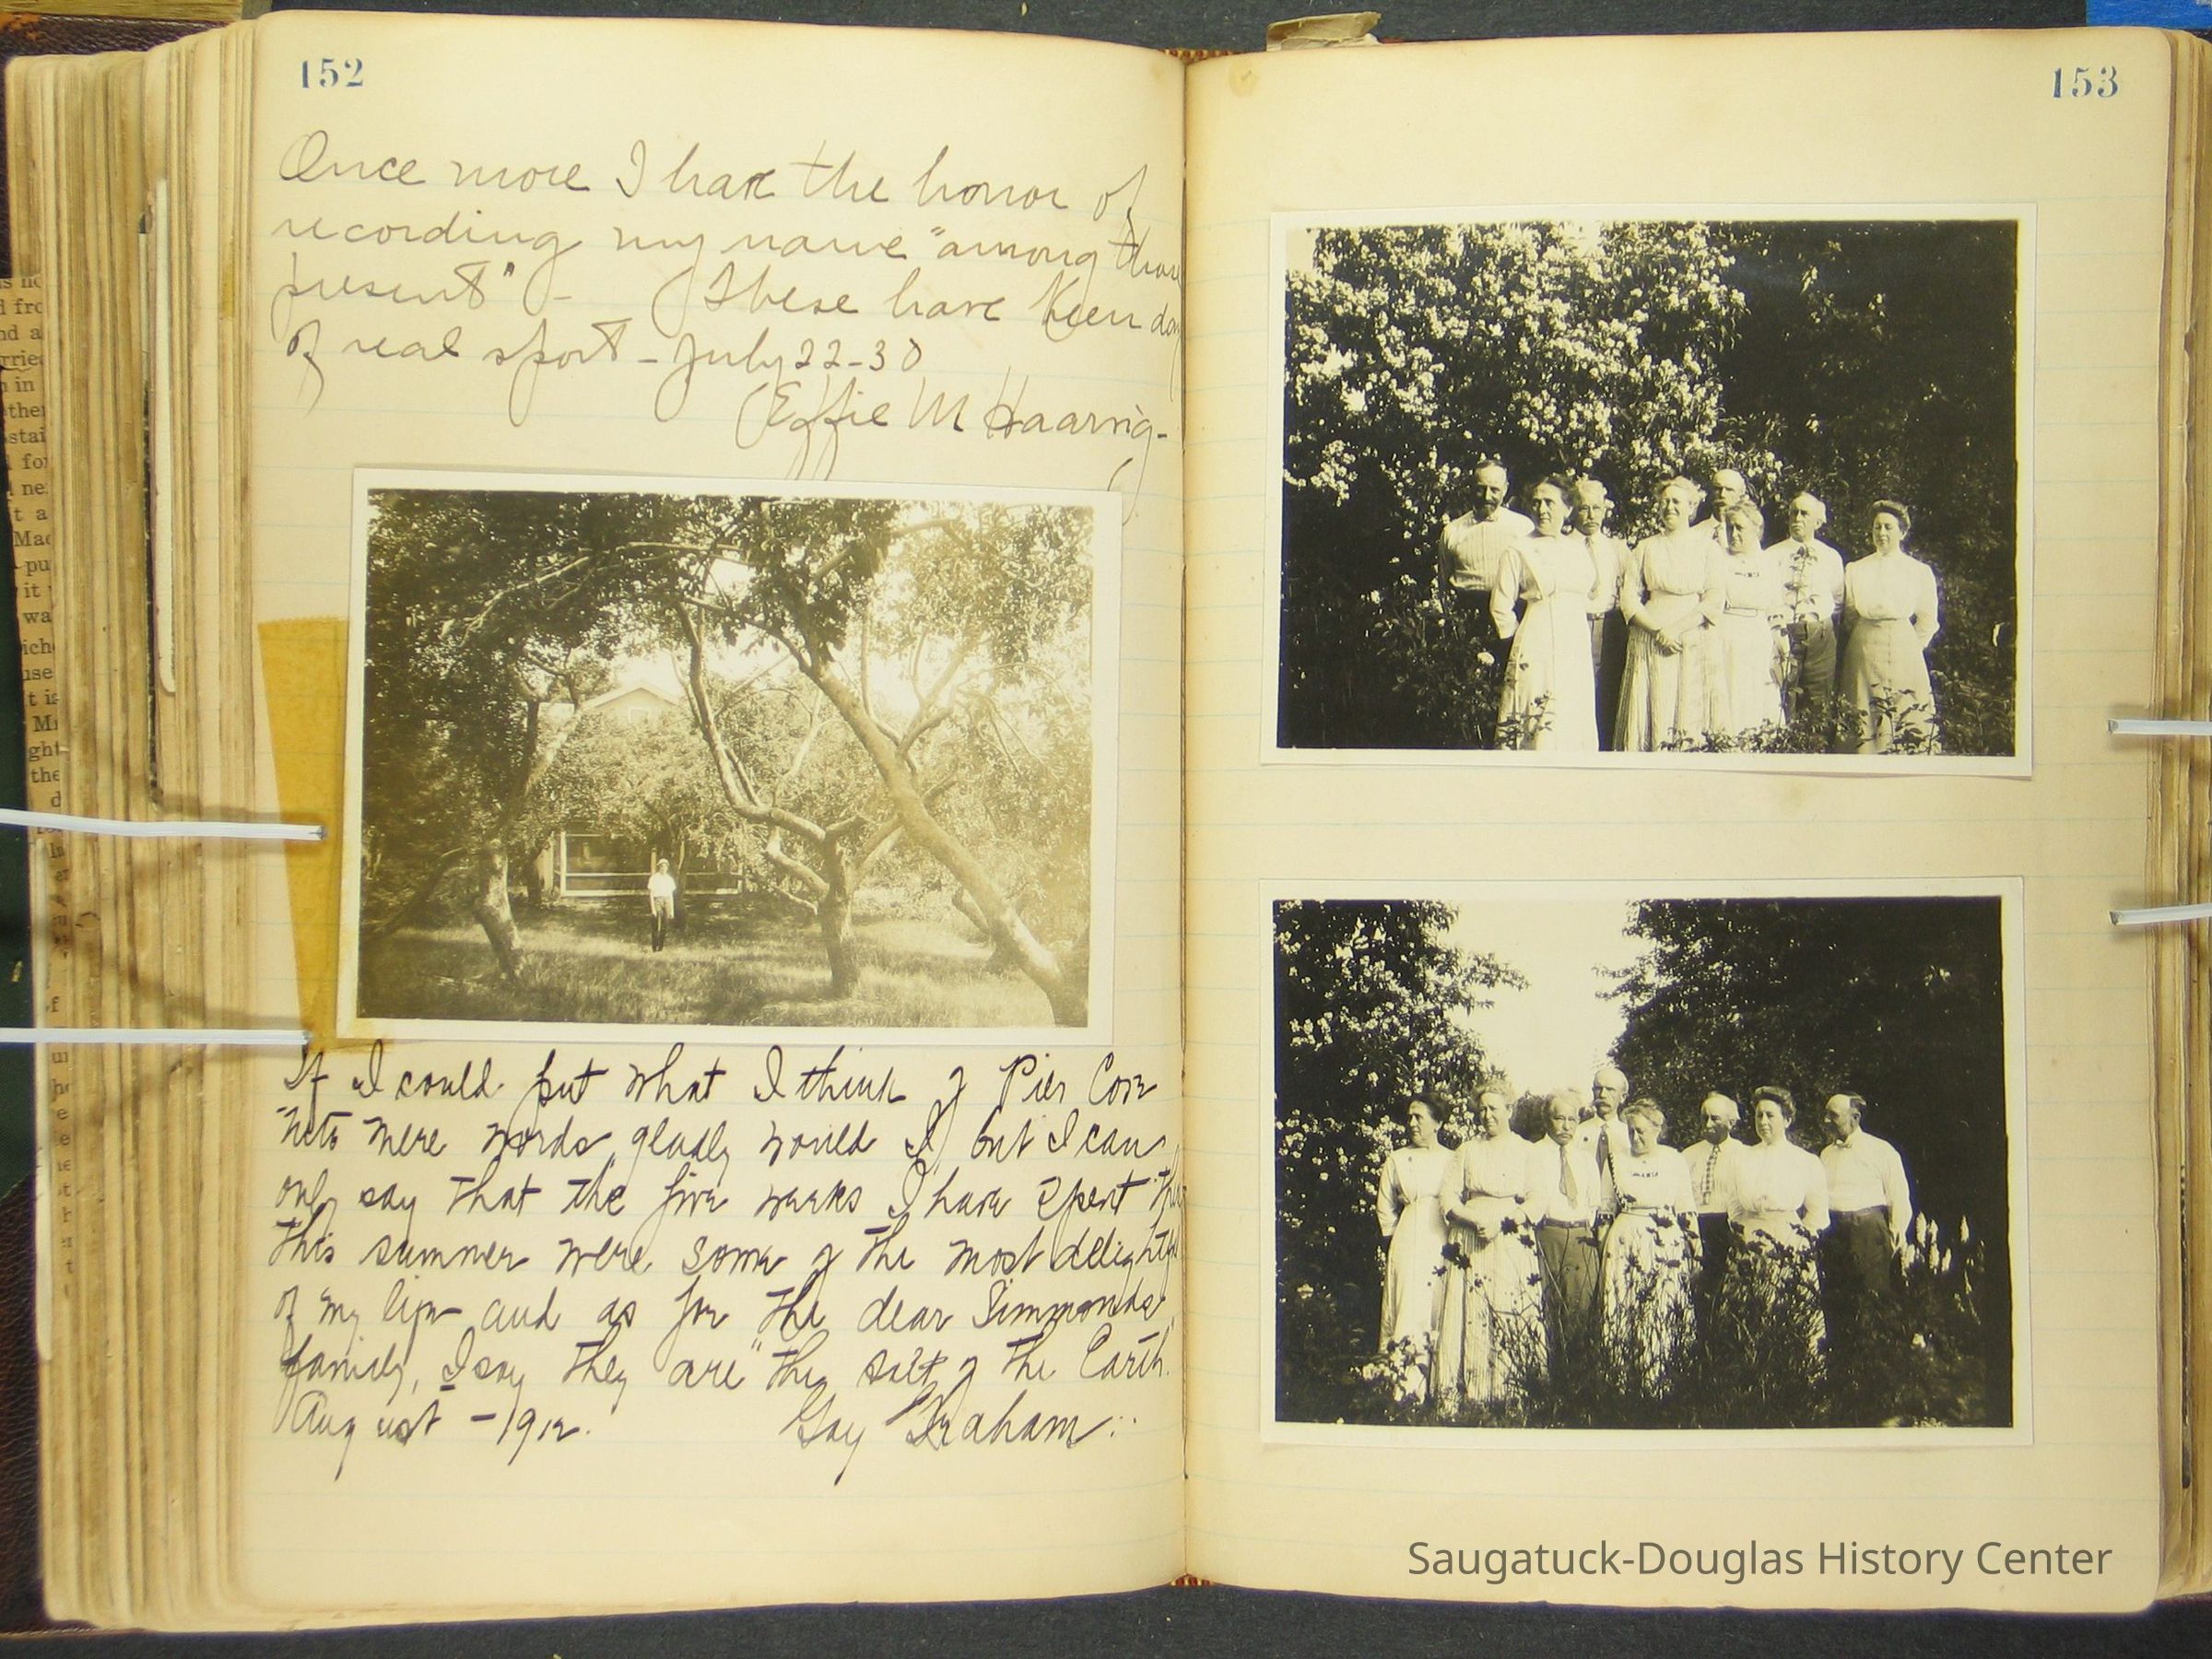 152
Once more I have the honor of
recording my name "among those
present" - These have been
of real sport - July 22-30
Effie M Haarvig-
If I could put what I think of Pier Cove
into mere words, gladly would I, but I can
only say that the five weeks I have spent
this summer were some of the most delightful
of my life and as for the dear Simmonds
family, I say they are "the salt of the Earth.
August - 1912.
Gay Graham
153
Saugatuck-Douglas History Center